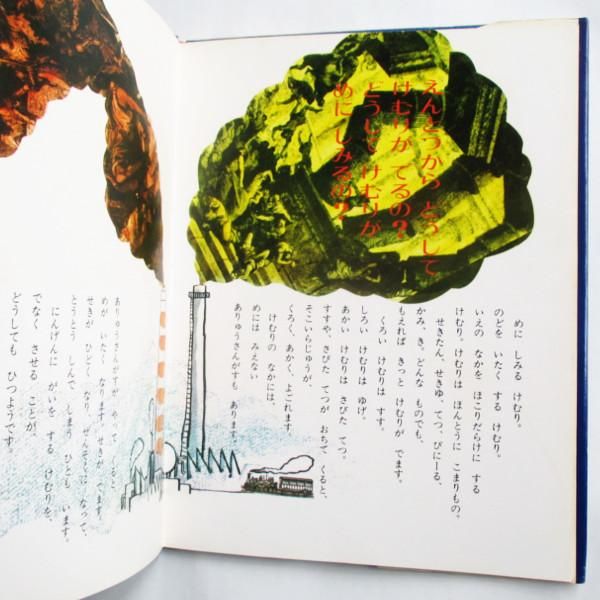 えんとつから どうして
けむりが でるの?
どうして けむりが
めに しみるの?
めに しみる けむり。
のどを いたく する けむり。
いえの なかを ほこりだらけに する
けむり。けむりは ほんとうに こまりもの。
せきたん、せきゆ、てつ、びにーる、
かみ、き、どんな ものでも、
もえれば きっと けむりが でます。
くろい けむりは すす。
しろい けむりは ゆげ。
あかい けむりは さびた てつ。
すすや、さびた てつが おちて くると、
そこいらじゅうが、
くろく、あかく、よごれます。
けむりの なかには、
めには みえない
ありゅうさんがすも あります。
ありゅうさんがすが やってくると、
めが いたく なります。せきが でます。
せきが ひどく なり、ぜんそくに なって、
とうとう しんで しまう ひとも います。
にんげんに がいを する けむりを、
でなく させる ことが、
どうしても ひつようです。